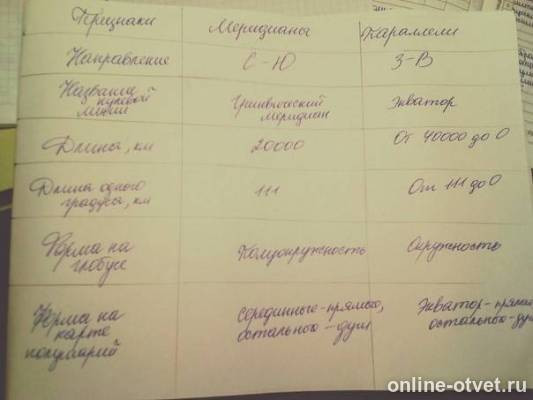 Признаки Меридианы Параллели
Направление С-Ю З-В
Название нулевой линии Гринвичский меридиан Экватор
Длина, км 20000 От 40000 до 0
Длина одного градуса, км 111 От 111 до 0
Форма на глобусе Полуокружность Окружность
Форма на карте полушарий Серединные-прямые, остальные-дуги Экватор-прямая остальные-дуги
online-otvet.ru